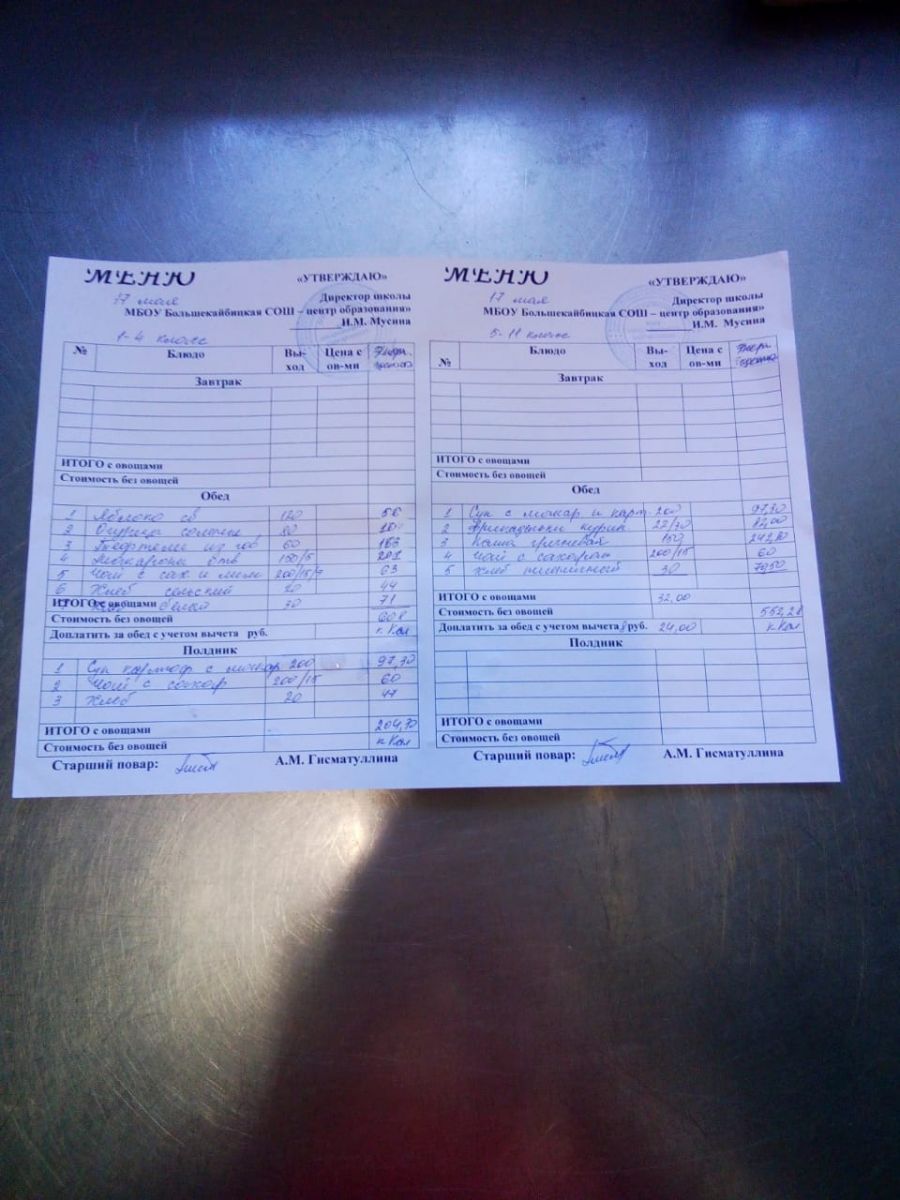 МЕНЮ
«УТВЕРЖДАЮ»
17 мая
Директор школы
МБОУ Большекайбицкая СОШ – центр образования»
И.М. Мусина
1-4 классс
№ Блюдо Вы-ход Цена с ов-ми
Завтрак
ИТОГО с овощами
Стоимость без овощей
Обед
1 Яблоко св 120 56
2 80
3 60
4 Макароны отв 150/5 201
5 Чай с сах и мол 63
6 Хлеб сельский 20 44
7 30 71
ИТОГО с овощами
Стоимость без овощей 608
Доплатить за обед с учетом вычета руб. кКал
Полдник
1 Суп картоф с макар 200 97,30
2 Чай с сахар 200/15 60
3 Хлеб 20 47
ИТОГО с овощами 204,30
Стоимость без овощей кКал
Старший повар: А.М. Гисматуллина
МЕНЮ
«УТВЕРЖДАЮ»
17 мая
Директор школы
МБОУ Большекайбицкая СОШ – центр образования»
И.М. Мусина
5-11 класс
№ Блюдо Вы-ход Цена с ов-ми
Завтрак
ИТОГО с овощами
Стоимость без овощей
Обед
1 Суп с макар и карт. 200 97,30
2 Фрикадельки курин
3 Каша гречневая 150
4 Чай с сахаром 200/15 60
5 Хлеб пшеничный 30
ИТОГО с овощами 32,00
Стоимость без овощей
Доплатить за обед с учетом вычета руб. 24,00 кКал
Полдник
ИТОГО с овощами
Стоимость без овощей
Старший повар: А.М. Гисматуллина